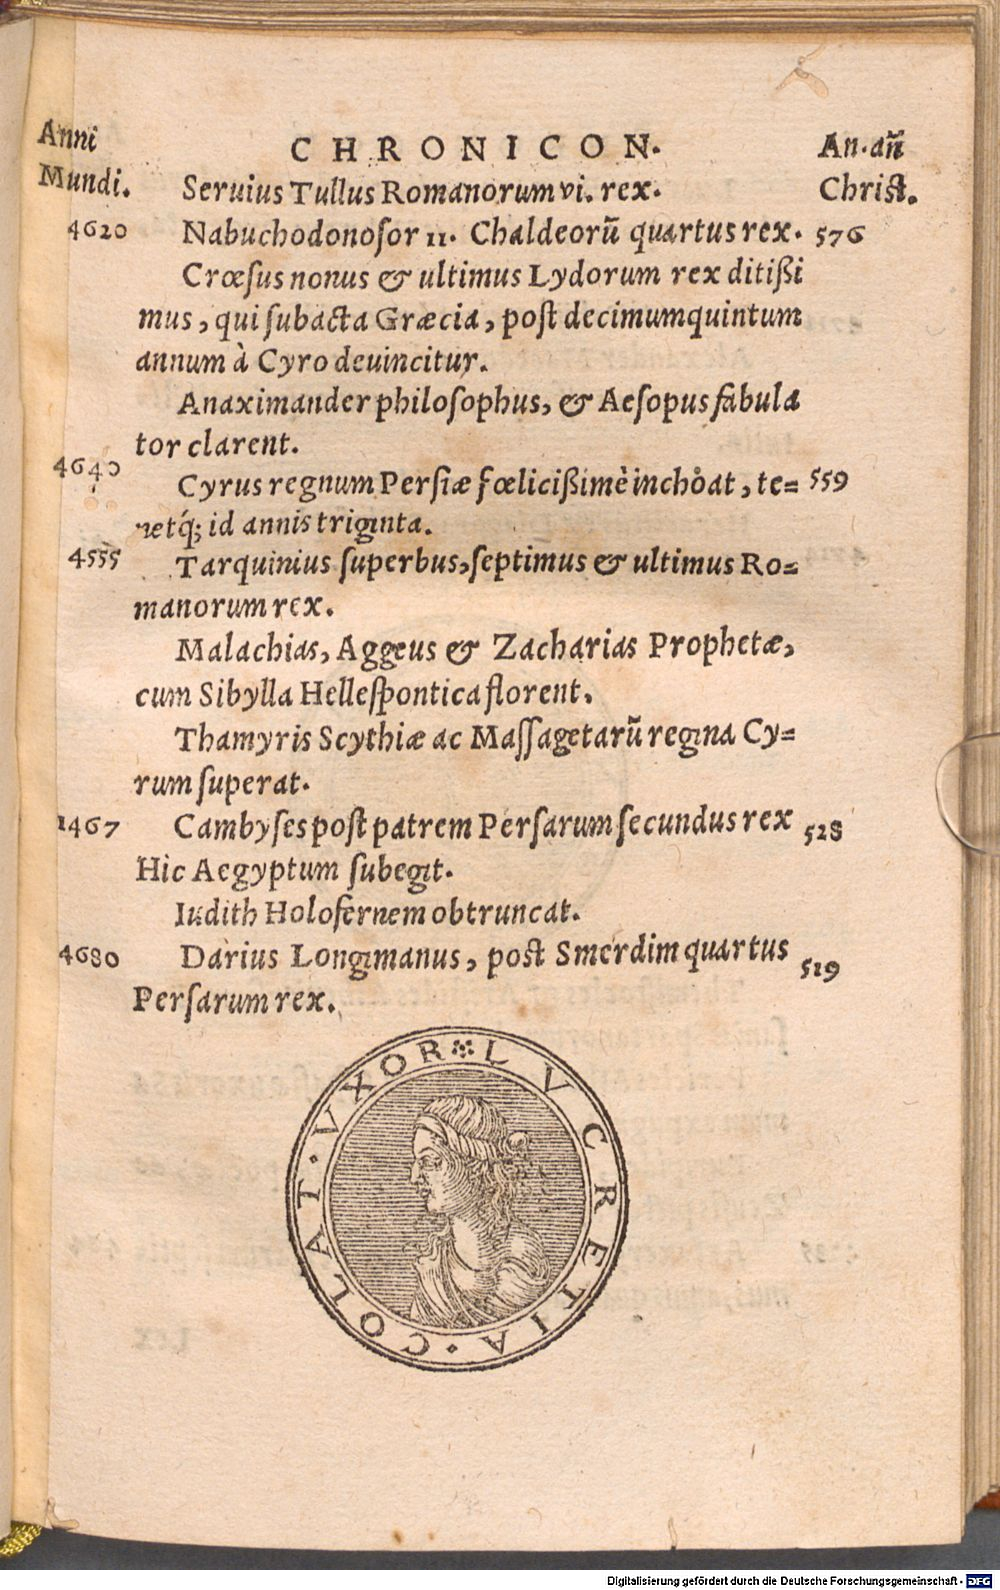 Anni CHRONICON. An.añ
Mundi. Seruius Tullus Romanorum vi. rex. Christ.
4620 Nabuchodonosor 11. Chaldeorũ quartus rex. 576
Crœsus nonus & ultimus Lydorum rex ditißi
mus, qui subacta Græcia, post decimumquintum
annum à Cyro deuincitur.
Anaximander philosophus, & Aesopus fabula
tor clarent.
4640 Cyrus regnum Persiæ fœlicißimè inchoat, te= 559
netq́; id annis triginta.
4555 Tarquinius superbus, septimus & ultimus Ro=
manorum rex.
Malachias, Aggeus & Zacharias Prophetæ,
cum Sibylla Hellespontica florent.
Thamyris Scythiæ ac Massagetarũ regina Cy=
rum superat.
1467 Cambyses post patrem Persarum secundus rex 528
Hic Aegyptum subegit.
Iudith Holofernem obtruncat.
4680 Darius Longimanus, post Smerdim quartus 519
Persarum rex.
LVCRETIA · COLAT · VXOR
Digitalisierung gefördert durch die Deutsche Forschungsgemeinschaft - DFG